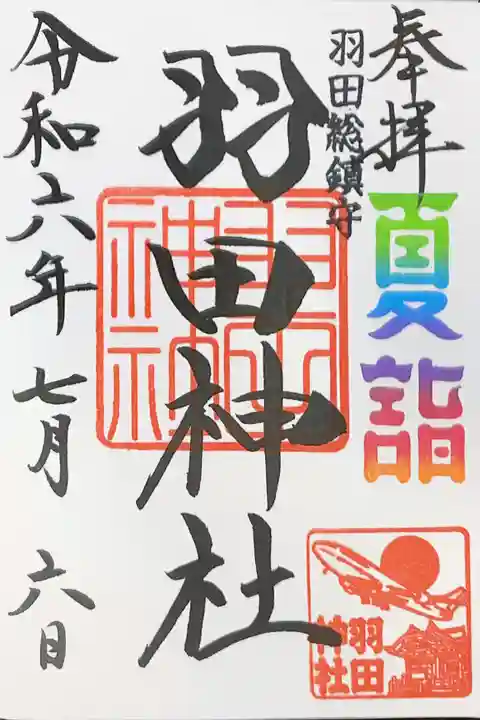 奉拝
夏詣
羽田総鎮守
羽田神社
令和六年七月六日
羽田
神社